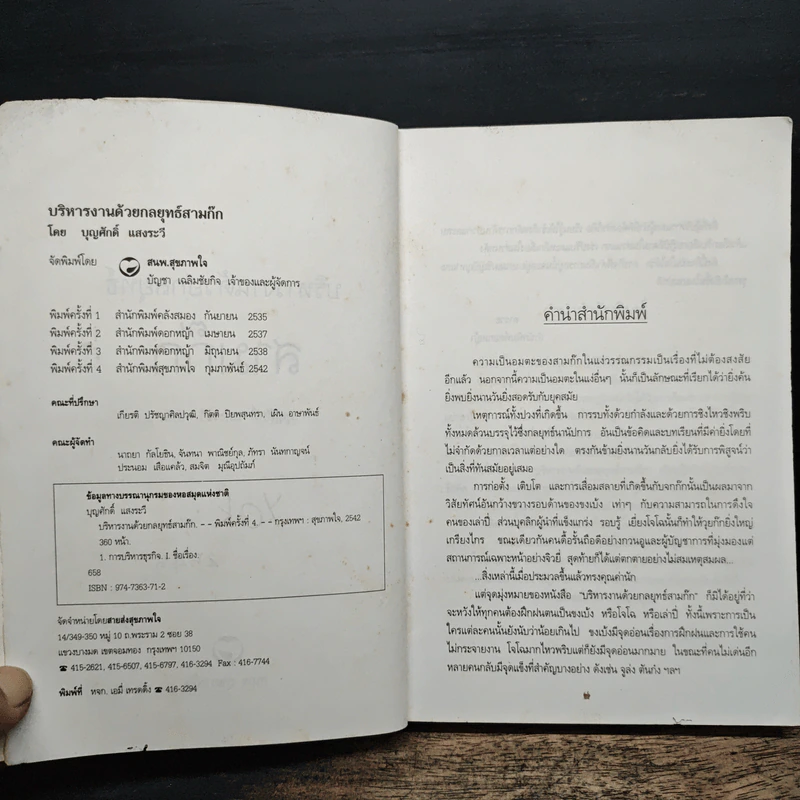 บริหารงานด้วยกลยุทธ์สามก๊ก
โดย บุญศักดิ์ แสงระวี
จัดพิมพ์โดย สนพ.สุขภาพใจ
บัญชา เฉลิมชัยกิจ เจ้าของและผู้จัดการ
พิมพ์ครั้งที่ 1 สำนักพิมพ์คลังสมอง กันยายน 2535
พิมพ์ครั้งที่ 2 สำนักพิมพ์ดอกหญ้า เมษายน 2537
พิมพ์ครั้งที่ 3 สำนักพิมพ์ดอกหญ้า มิถุนายน 2538
พิมพ์ครั้งที่ 4 สำนักพิมพ์สุขภาพใจ กุมภาพันธ์ 2542
คณะที่ปรึกษา
เกียรติ ปรัชญาศิลปวุฒิ, กิตติ ปิยพสุนทรา, เผิน อาษาพันธ์
คณะผู้จัดทำ
นาถยา กัลโยธิน, จันทนา พาณิชย์กุล, ภัทรา นันทกาญจน์
ประนอม เสือแคล้ว, สมจิต มุณีอุปถัมภ์
ข้อมูลทางบรรณานุกรมของหอสมุดแห่งชาติ
บุญศักดิ์ แสงระวี
บริหารงานด้วยกลยุทธ์สามก๊ก. - - พิมพ์ครั้งที่ 4. - - กรุงเทพฯ : สุขภาพใจ, 2542
360 หน้า.
1. การบริหารธุรกิจ. I. ชื่อเรื่อง.
658
ISBN : 974-7363-71-2
จัดจำหน่ายโดยสายส่งสุขภาพใจ
14/349-350 หมู่ 10 ถ.พระราม 2 ซอย 38
แขวงบางมด เขตจอมทอง กรุงเทพฯ 10150
☎ 415-2621, 415-6507, 415-6797, 416-3294 Fax : 416-7744
พิมพ์ที่ หจก. เอมี่ เทรดดิ้ง ☎ 416-3294
คำนำสำนักพิมพ์
ความเป็นอมตะของสามก๊กในแง่วรรณกรรมเป็นเรื่องที่ไม่ต้องสงสัย
อีกแล้ว นอกจากนี้ความเป็นอมตะในแง่อื่นๆ นั้นก็เป็นลักษณะที่เรียกได้ว่ายิ่งค้น
ยิ่งพบยิ่งนานวันยิ่งสอดรับกับยุคสมัย
เหตุการณ์ทั้งปวงที่เกิดขึ้น การรบทั้งด้วยกำลังและด้วยการชิงไหวชิงพริบ
ทั้งหมดล้วนบรรจุไว้ซึ่งกลยุทธ์นานัปการ อันเป็นข้อคิดและบทเรียนที่มีค่ายิ่งโดยที่
ไม่จำกัดด้วยกาลเวลาแต่อย่างใด ตรงกันข้ามยิ่งนานวันกลับยิ่งได้รับการพิสูจน์ว่า
เป็นสิ่งที่ทันสมัยอยู่เสมอ
การก่อตั้ง เติบโต และการเสื่อมสลายที่เกิดขึ้นกับจกก๊กนั้นเป็นผลมาจาก
วิสัยทัศน์อันกว้างขวางรอบด้านของขงเบ้ง เท่าๆ กับความสามารถในการดึงใจ
คนของเล่าปี่ ส่วนบุคลิกผู้นำที่แข็งแกร่ง รอบรู้ เยี่ยงโจโฉนั้นก็ทำให้วุยก๊กยิ่งใหญ่
เกรียงไกร ขณะเดียวกันคนดื้อรั้นถือดีอย่างกวนอูและผู้บัญชาการที่มุ่งมองแต่
สถานการณ์เฉพาะหน้าอย่างจิวยี่ สุดท้ายก็ได้แต่ตกตายอย่างไม่สมเหตุสมผล...
...สิ่งเหล่านี้เมื่อประมวลขึ้นแล้วทรงคุณค่านัก
แต่จุดมุ่งหมายของหนังสือ “บริหารงานด้วยกลยุทธ์สามก๊ก” ก็มิได้อยู่ที่ว่า
จะหวังให้ทุกคนต้องฝึกฝนตนเป็นขงเบ้ง หรือโจโฉ หรือเล่าปี่ ทั้งนี้เพราะการเป็น
ใครแต่ละคนนั้นยังนับว่าน้อยเกินไป ขงเบ้งมีจุดอ่อนเรื่องการฝึกฝนและการใช้คน
ไม่กระจายงาน โจโฉมากไหวพริบแต่ก็ยังมีจุดอ่อนมากมาย ในขณะที่คนไม่เด่นอีก
หลายคนกลับมีจุดแข็งที่สำคัญบางอย่าง ดังเช่น จูล่ง ตันก๋ง ฯลฯ